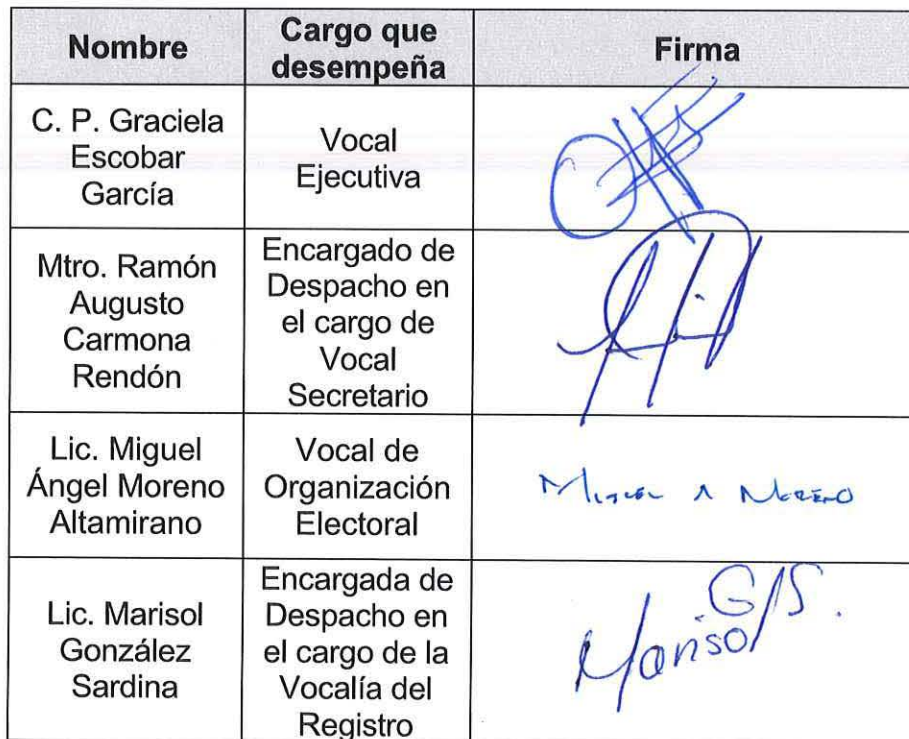 Nombre
Cargo que
desempeña
Firma
C. P. Graciela
Escobar
García
Vocal
Ejecutiva
Mtro. Ramón
Augusto
Carmona
Rendón
Encargado de
Despacho en
el cargo de
Vocal
Secretario
Lic. Miguel
Ángel Moreno
Altamirano
Vocal de
Organización
Electoral
Miguel A Moreno
Lic. Marisol
González
Sardina
Encargada de
Despacho en
el cargo de la
Vocalía del
Registro
Marisol G S.